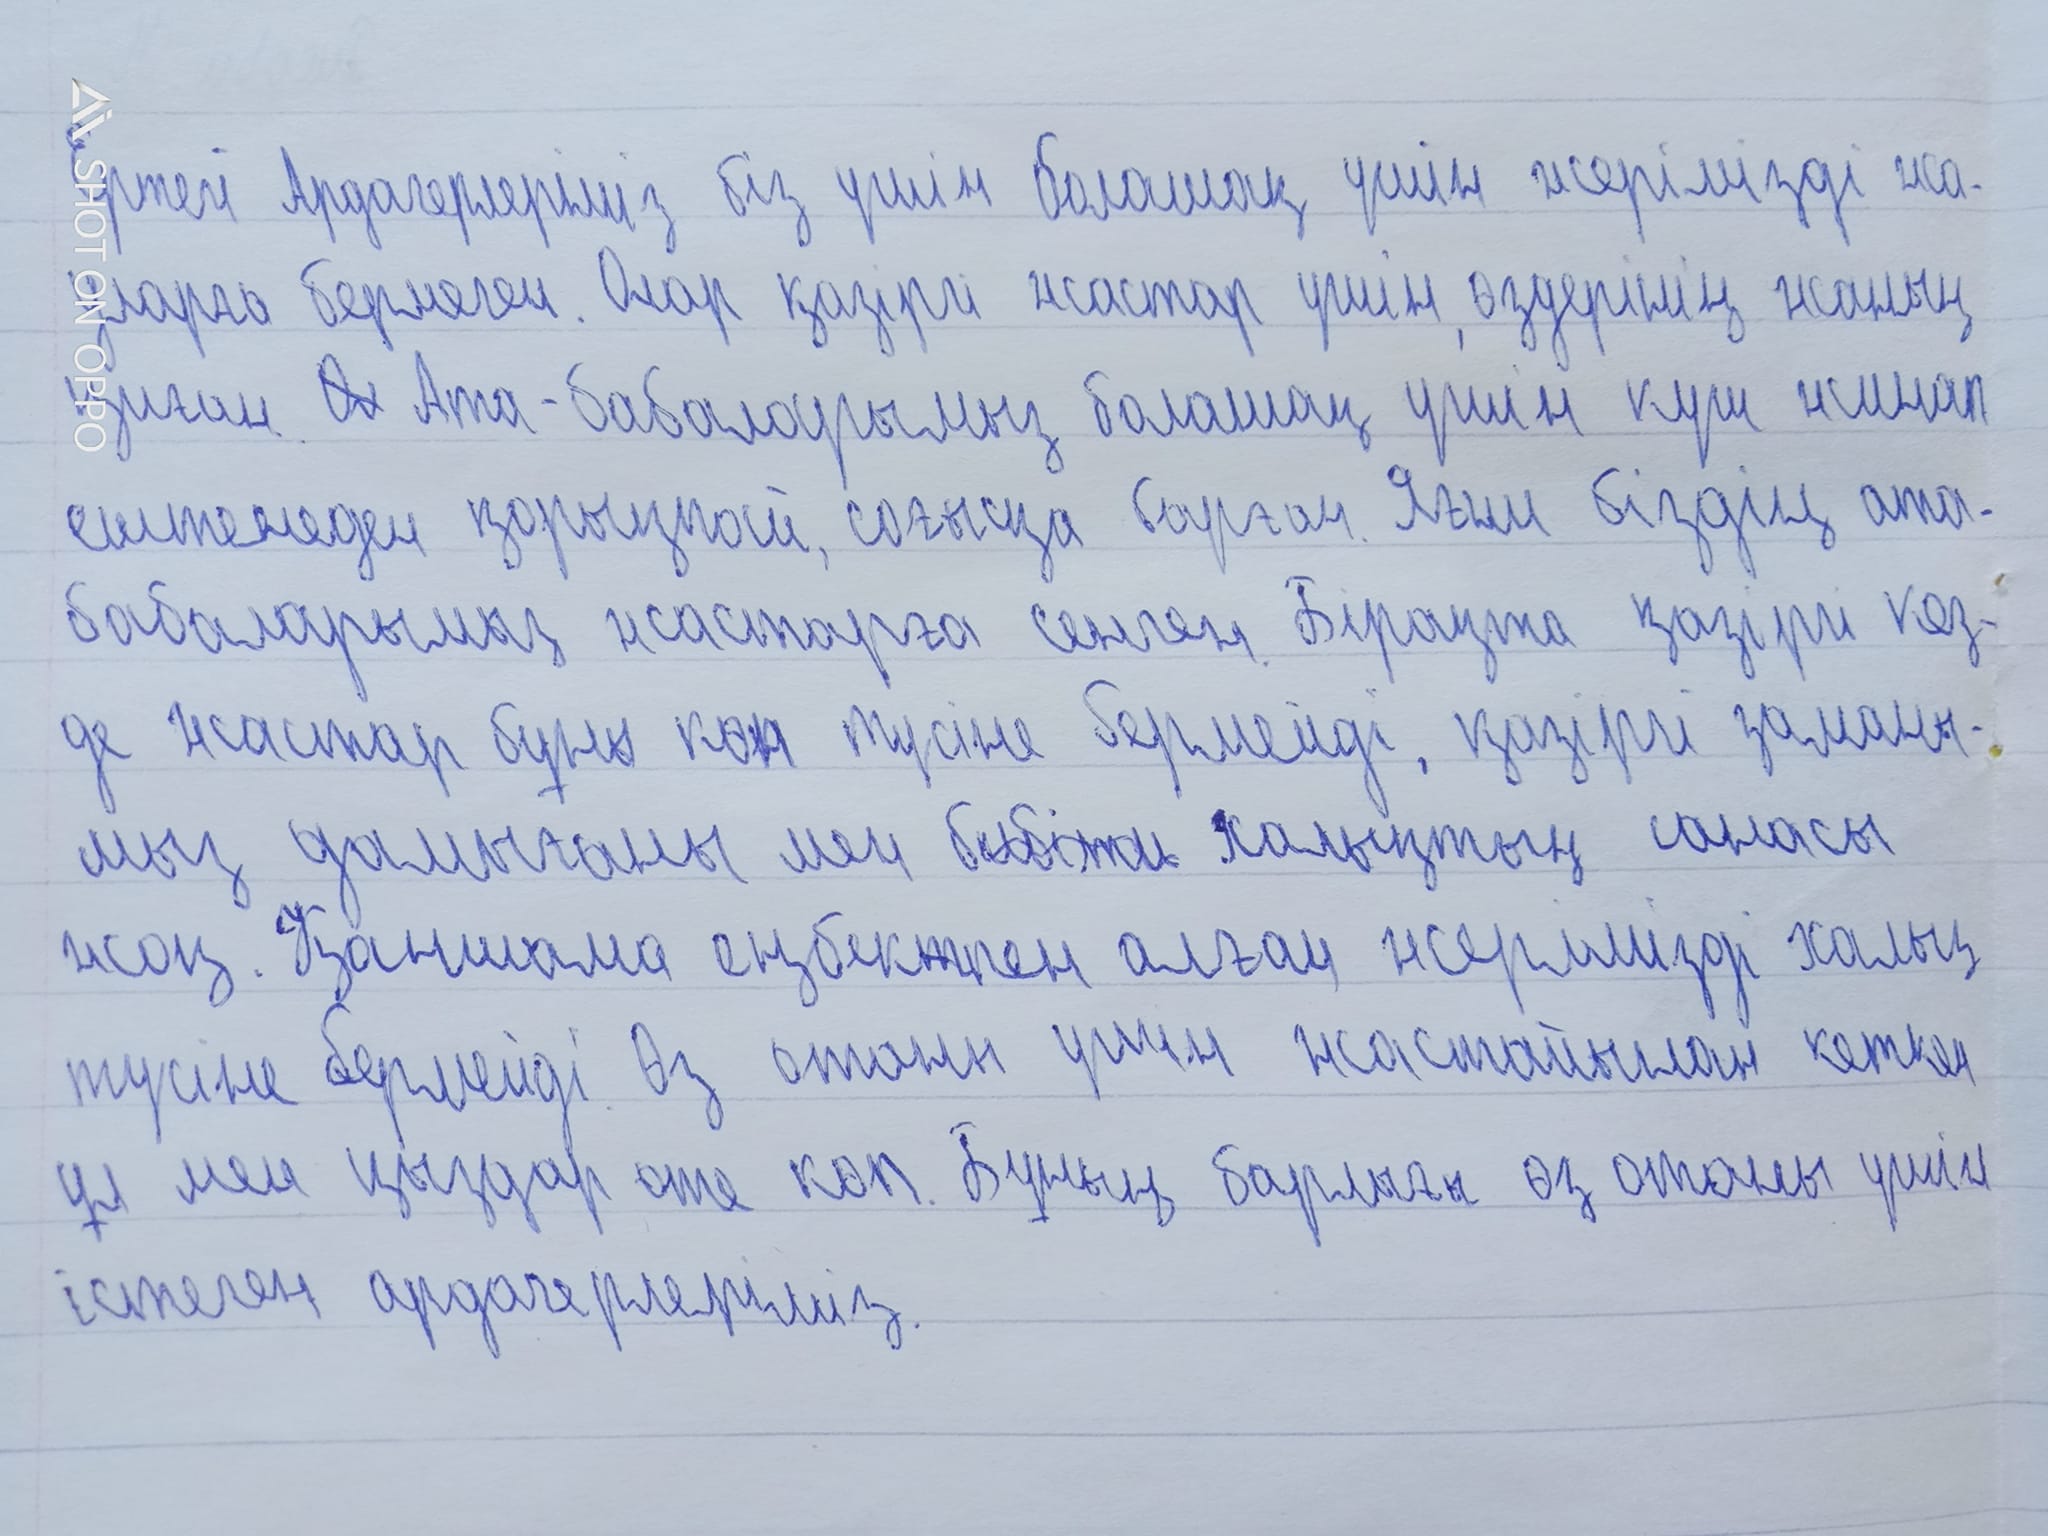 SHOT ON OPPO
Ертегі Ардагерлеріміз біз үшін болашақ үшін жерімізді жа-
уларға бермеген. Олар қазіргі жастар үшін, өздерінің жанын
қиған. Ата-бабаларымыз болашақ үшін күш жинап
ештенеден қорықпай, соғысқа барған. Яғни біздің ата-
бабаларымыз жастарға сенген. Бірақта қазіргі кез-
де жастар бұны көп түсіне бермейді, қазіргі заманы-
мыз дамығаны мен халықтың санасы
жоқ. Қаншама еңбектпен алған жерімізді халық
түсіне бермейді. Өз отаны үшін жастайынан кеткен
ұл мен қыздар өте көп. Бұның барлығы өз отаны үшін
істеген ардагерлеріміз.